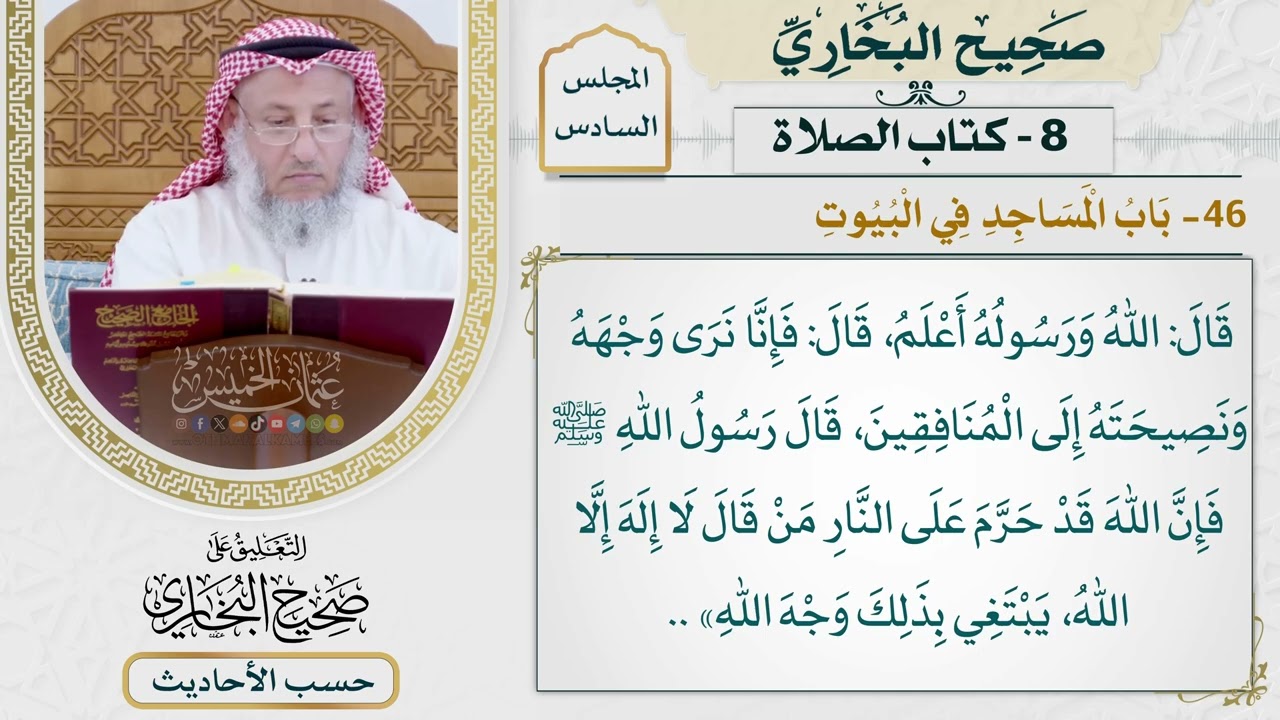 صَحِيح البُخَارِيِّ
8 - كتاب الصلاة
المجلس
السادس
46- بَابُ الْمَسَاجِدِ فِي الْبُيُوتِ
قَالَ: اللهُ وَرَسُولُهُ أَعْلَمُ، قَالَ: فَإِنَّا نَرَى وَجْهَهُ
وَنَصِيحَتَهُ إِلَى الْمُنَافِقِينَ، قَالَ رَسُولُ اللهِ ﷺ
فَإِنَّ اللهَ قَدْ حَرَّمَ عَلَى النَّارِ مَنْ قَالَ لَا إِلَهَ إِلَّا
اللهُ، يَبْتَغِي بِذَلِكَ وَجْهَ اللهِ» ..
الجامع الصحيح
عثمان الخميس
التَّعْلِيقُ عَلَى
صَحِيحِ البُخَارِي
حسب الأحاديث